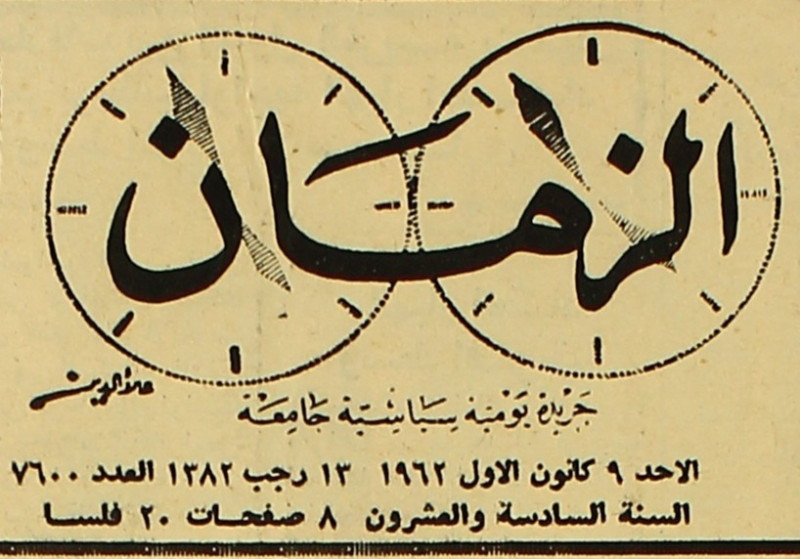 الزمان
علاء الدين
جريدة يومية سياسية جامعة
الاحد ٩ كانون الاول ١٩٦٢ ١٣ رجب ١٣٨٢ العدد ٧٦٠٠
السنة السادسة والعشرون ٨ صفحات ٢٠ فلسا